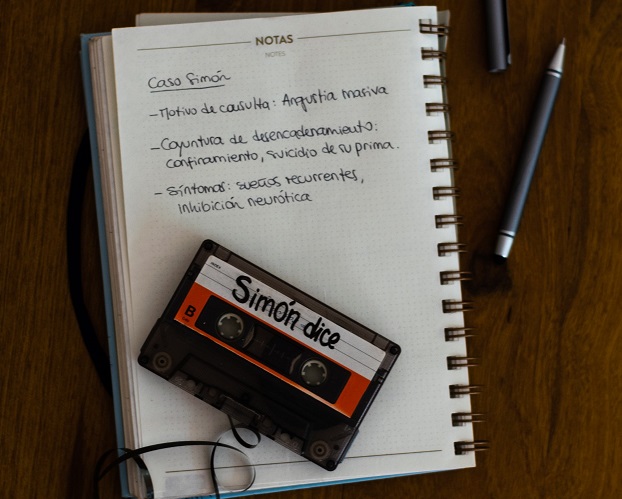 NOTAS
NOTES
Caso Simón
- Motivo de consulta: Angustia masiva
- Coyuntura de desencadenamiento:
confinamiento, suicidio de su prima.
- Síntomas: sueños recurrentes,
inhibición neurótica
Simón dice
B